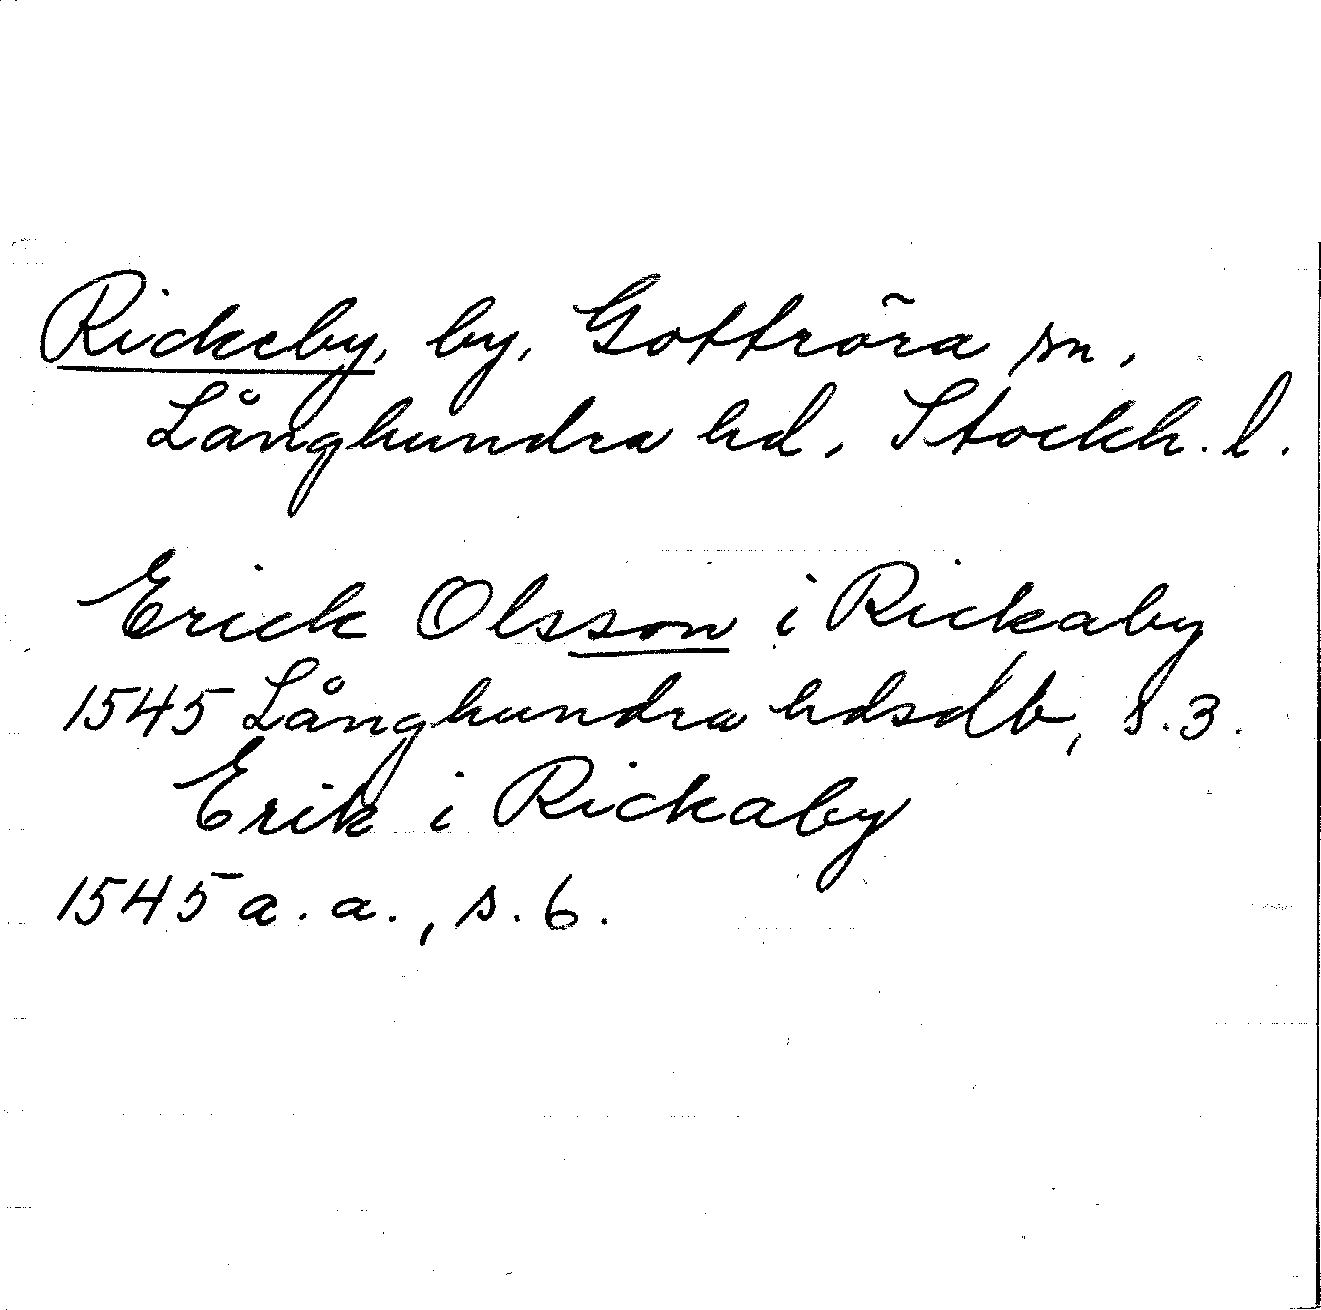 Rickeby, by, Gottröra sn,
Långhundra hd, Stockh. l.
Erick Olsson i Rickaby
1545 Långhundra hdsdb, s. 3.
Erik i Rickaby
1545 a. a., s. 6.